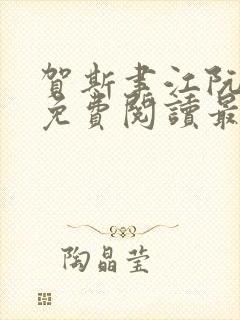 賀斯聿江阮
免費閱讀最
陶晶莹